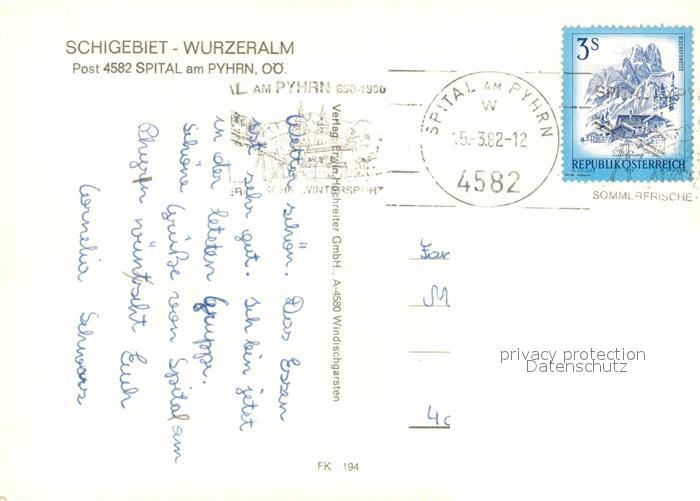 SCHIGEBIET - WURZERALM
Post 4582 SPITAL am PYHRN, OÖ.
AL AM PYHRN 850-1900
WINTERSPORT
SPITAL AM PYHRN
W
15.-3.82-12
4582
3S
REPUBLIK ÖSTERREICH
SOMMERFRISCHE -
Verlag: Erwin Hochreiter GmbH., A-4580 Windischgarsten
Wetter schön. Das Essen
ist sehr gut. Ich bin jetzt
in der letzten Gruppe.
Schöne Grüße von Spital am
Phyrn wünscht Euch
Cornelia Schwarz
Fam
M
40
privacy protection
Datenschutz
FK 194